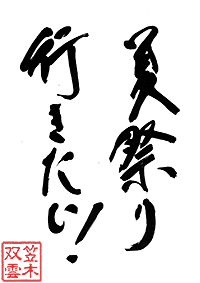 夏祭り
行きたい!
笠木
双雲